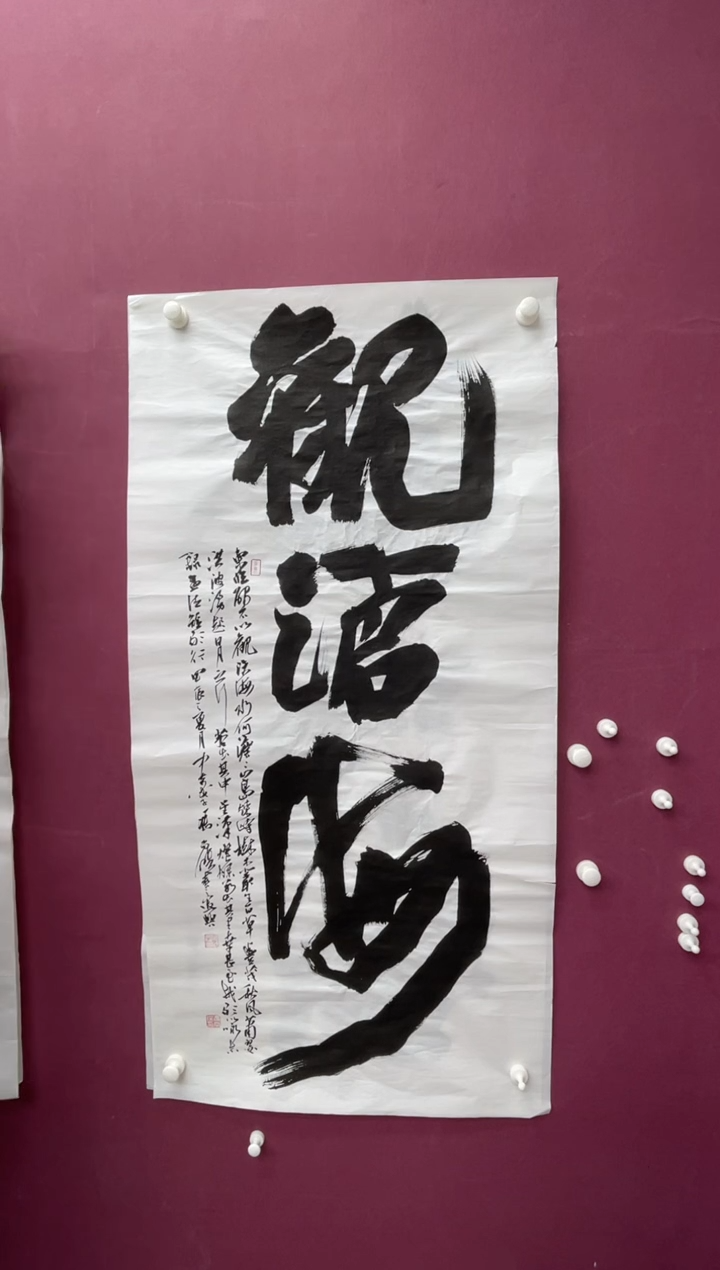 觀滄海
東臨碣石以觀滄海水何澹澹山島竦峙樹木叢生百草豐茂秋風蕭瑟
洪波湧起日月之行若出其中星漢燦爛若出其里幸甚至哉歌以詠志
甲辰之夏月